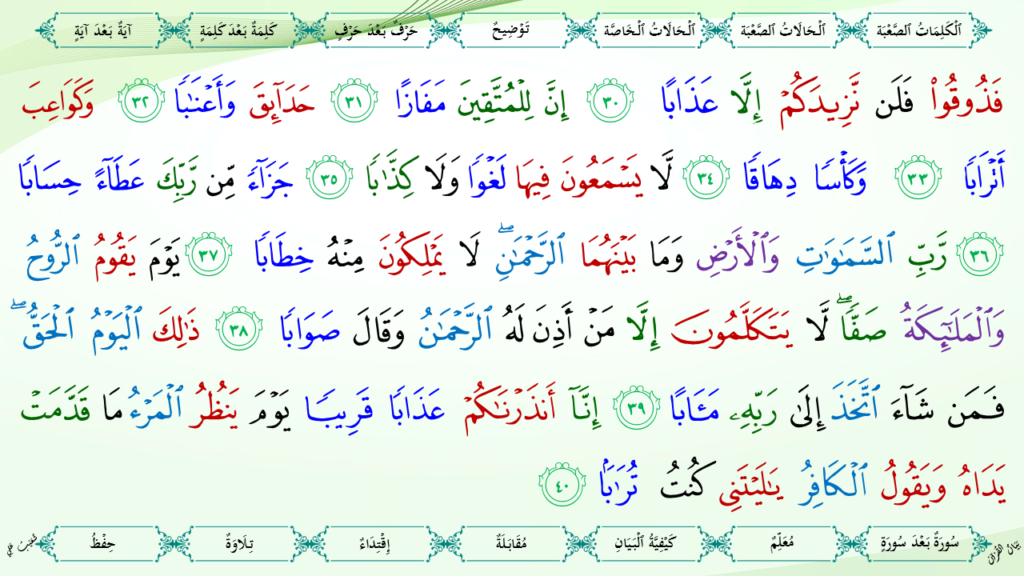 ٱلْكَلِمَاتُ ٱلصَّعْبَة ٱلْحَالَاتُ ٱلصَّعْبَة ٱلْحَالَاتُ ٱلْخَاصَّة تَوْضِيحٌ حَرْفٌ بَعْدَ حَرْفٍ كَلِمَةٌ بَعْدَ كَلِمَةٍ آيَةٌ بَعْدَ آيَةٍ
فَذُوقُوا۟ فَلَن نَّزِيدَكُمْ إِلَّا عَذَابًا ٣٠ إِنَّ لِلْمُتَّقِينَ مَفَازًا ٣١ حَدَآئِقَ وَأَعْنَـٰبًا ٣٢ وَكَوَاعِبَ
أَتْرَابًا ٣٣ وَكَأْسًا دِهَاقًا ٣٤ لَّا يَسْمَعُونَ فِيهَا لَغْوًا وَلَا كِذَّٰبًا ٣٥ جَزَآءً مِّن رَّبِّكَ عَطَآءً حِسَابًا
٣٦ رَّبِّ ٱلسَّمَـٰوَٰتِ وَٱلْأَرْضِ وَمَا بَيْنَهُمَا ٱلرَّحْمَـٰنِ ۖ لَا يَمْلِكُونَ مِنْهُ خِطَابًا ٣٧ يَوْمَ يَقُومُ ٱلرُّوحُ
وَٱلْمَلَـٰٓئِكَةُ صَفًّا ۖ لَّا يَتَكَلَّمُونَ إِلَّا مَنْ أَذِنَ لَهُ ٱلرَّحْمَـٰنُ وَقَالَ صَوَابًا ٣٨ ذَٰلِكَ ٱلْيَوْمُ ٱلْحَقُّ ۖ
فَمَن شَآءَ ٱتَّخَذَ إِلَىٰ رَبِّهِۦ مَـَٔابًا ٣٩ إِنَّآ أَنذَرْنَـٰكُمْ عَذَابًا قَرِيبًا يَوْمَ يَنظُرُ ٱلْمَرْءُ مَا قَدَّمَتْ
يَدَاهُ وَيَقُولُ ٱلْكَافِرُ يَـٰلَيْتَنِى كُنتُ تُرَٰبًۢا ٤٠
سُورَةٌ بَعْدَ سُورَةٍ مُعَلِّمٌ كَيْفِيَّةُ ٱلْبَيَانِ مُقَابَلَةٌ إِقْتِدَاءٌ تِلَاوَةٌ حِفْظٌ